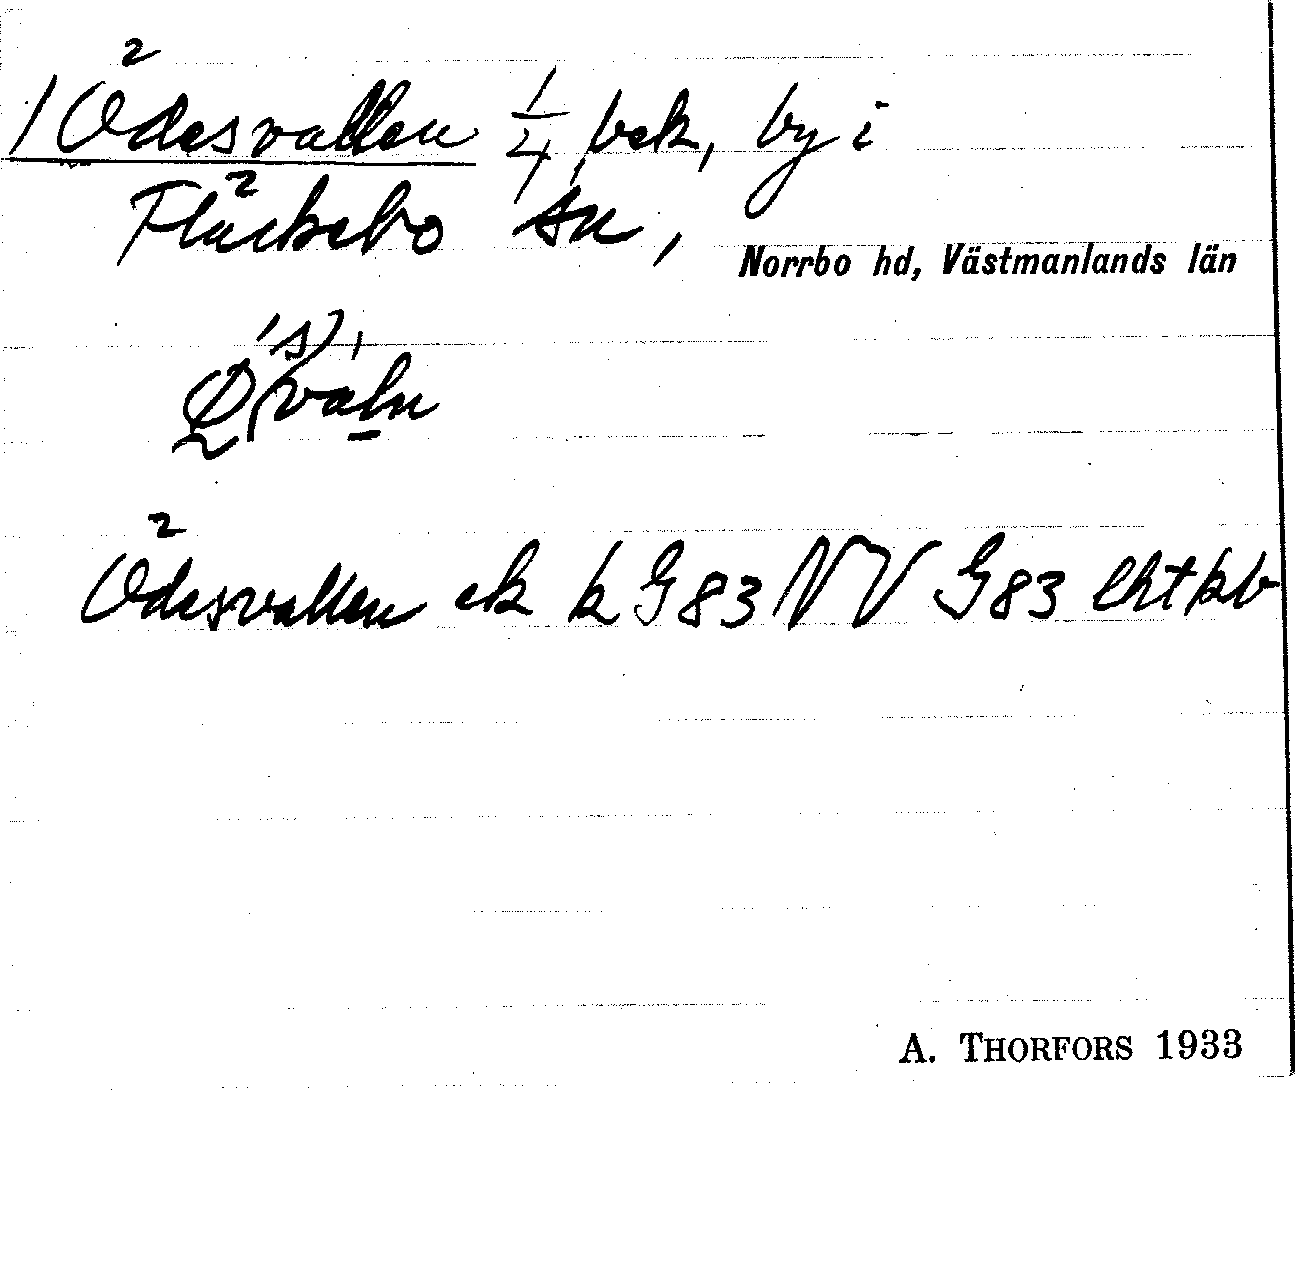 1 Ödesvallen 1/4 bek, by i
Fläckebo sn,
Norrbo hd, Västmanlands län
Ödesvallen ek k G83 NV G83 lht kb
A. THORFORS 1933